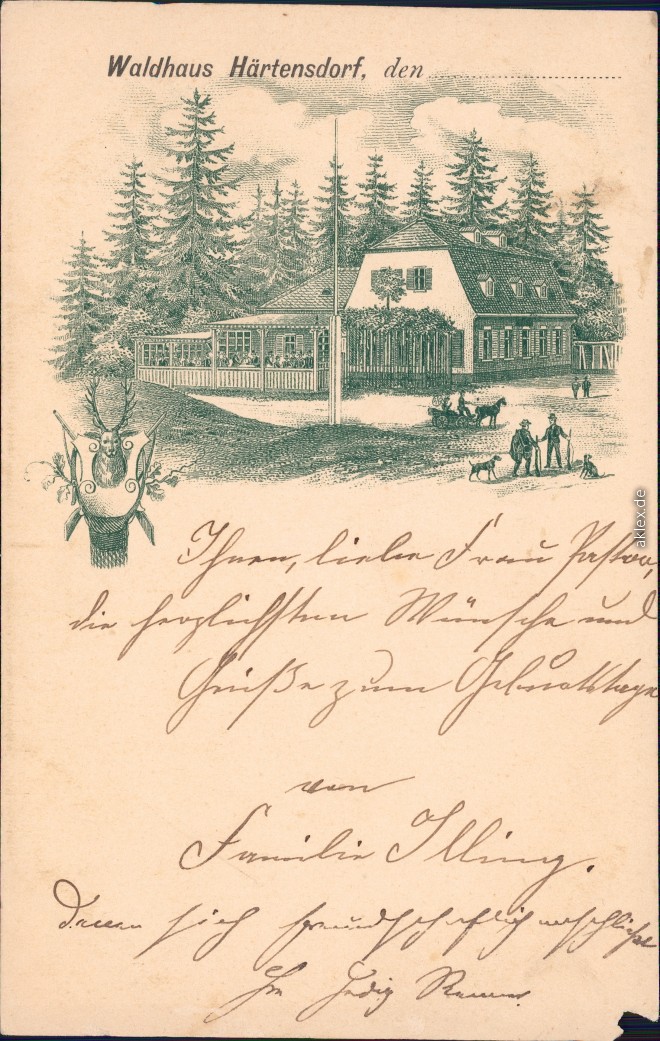 Waldhaus Härtensdorf, den
Ihnen, liebe Frau Pastor,
die herzlichsten Wünsche und
Grüße zum Geburtstage
von
Familie Illing.
Denen sich freundschaftlich anschließt
aklex.de